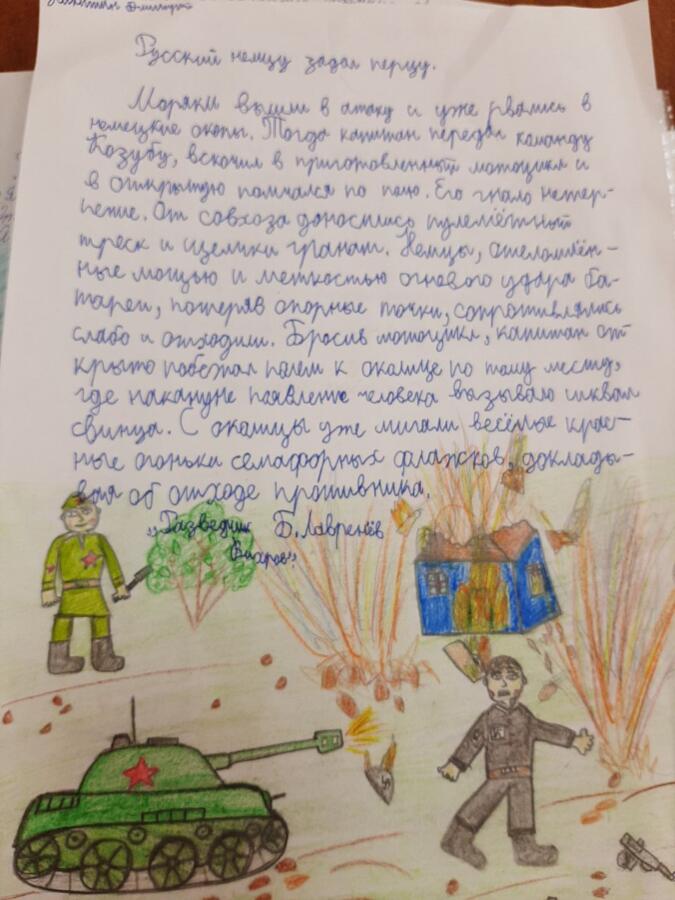 Русский немцу задал перцу.
Моряки вышли в атаку и уже рвались в
немецкие окопы. Тогда капитан передал команду
Козубу, вскочил в приготовленный мотоцикл и
в открытую помчался по полю. Его гнало нетер-
пение. От совхоза доносились пулемётный
треск и щелчки гранат. Немцы, ошеломлён-
ные мощью и меткостью огневого удара ба-
тареи, потеряв опорные точки, сопротивлялись
слабо и отходили. Бросив мотоцикл, капитан от
крыто побежал полем к околице по тому месту,
где накануне появление человека вызывало шквал
свинца. С околицы уже мигали весёлые крас-
ные огоньки семафорных флажков, доклады-
вая об отходе противника.
"Разведчик Б. Лавренёв
Вихров"